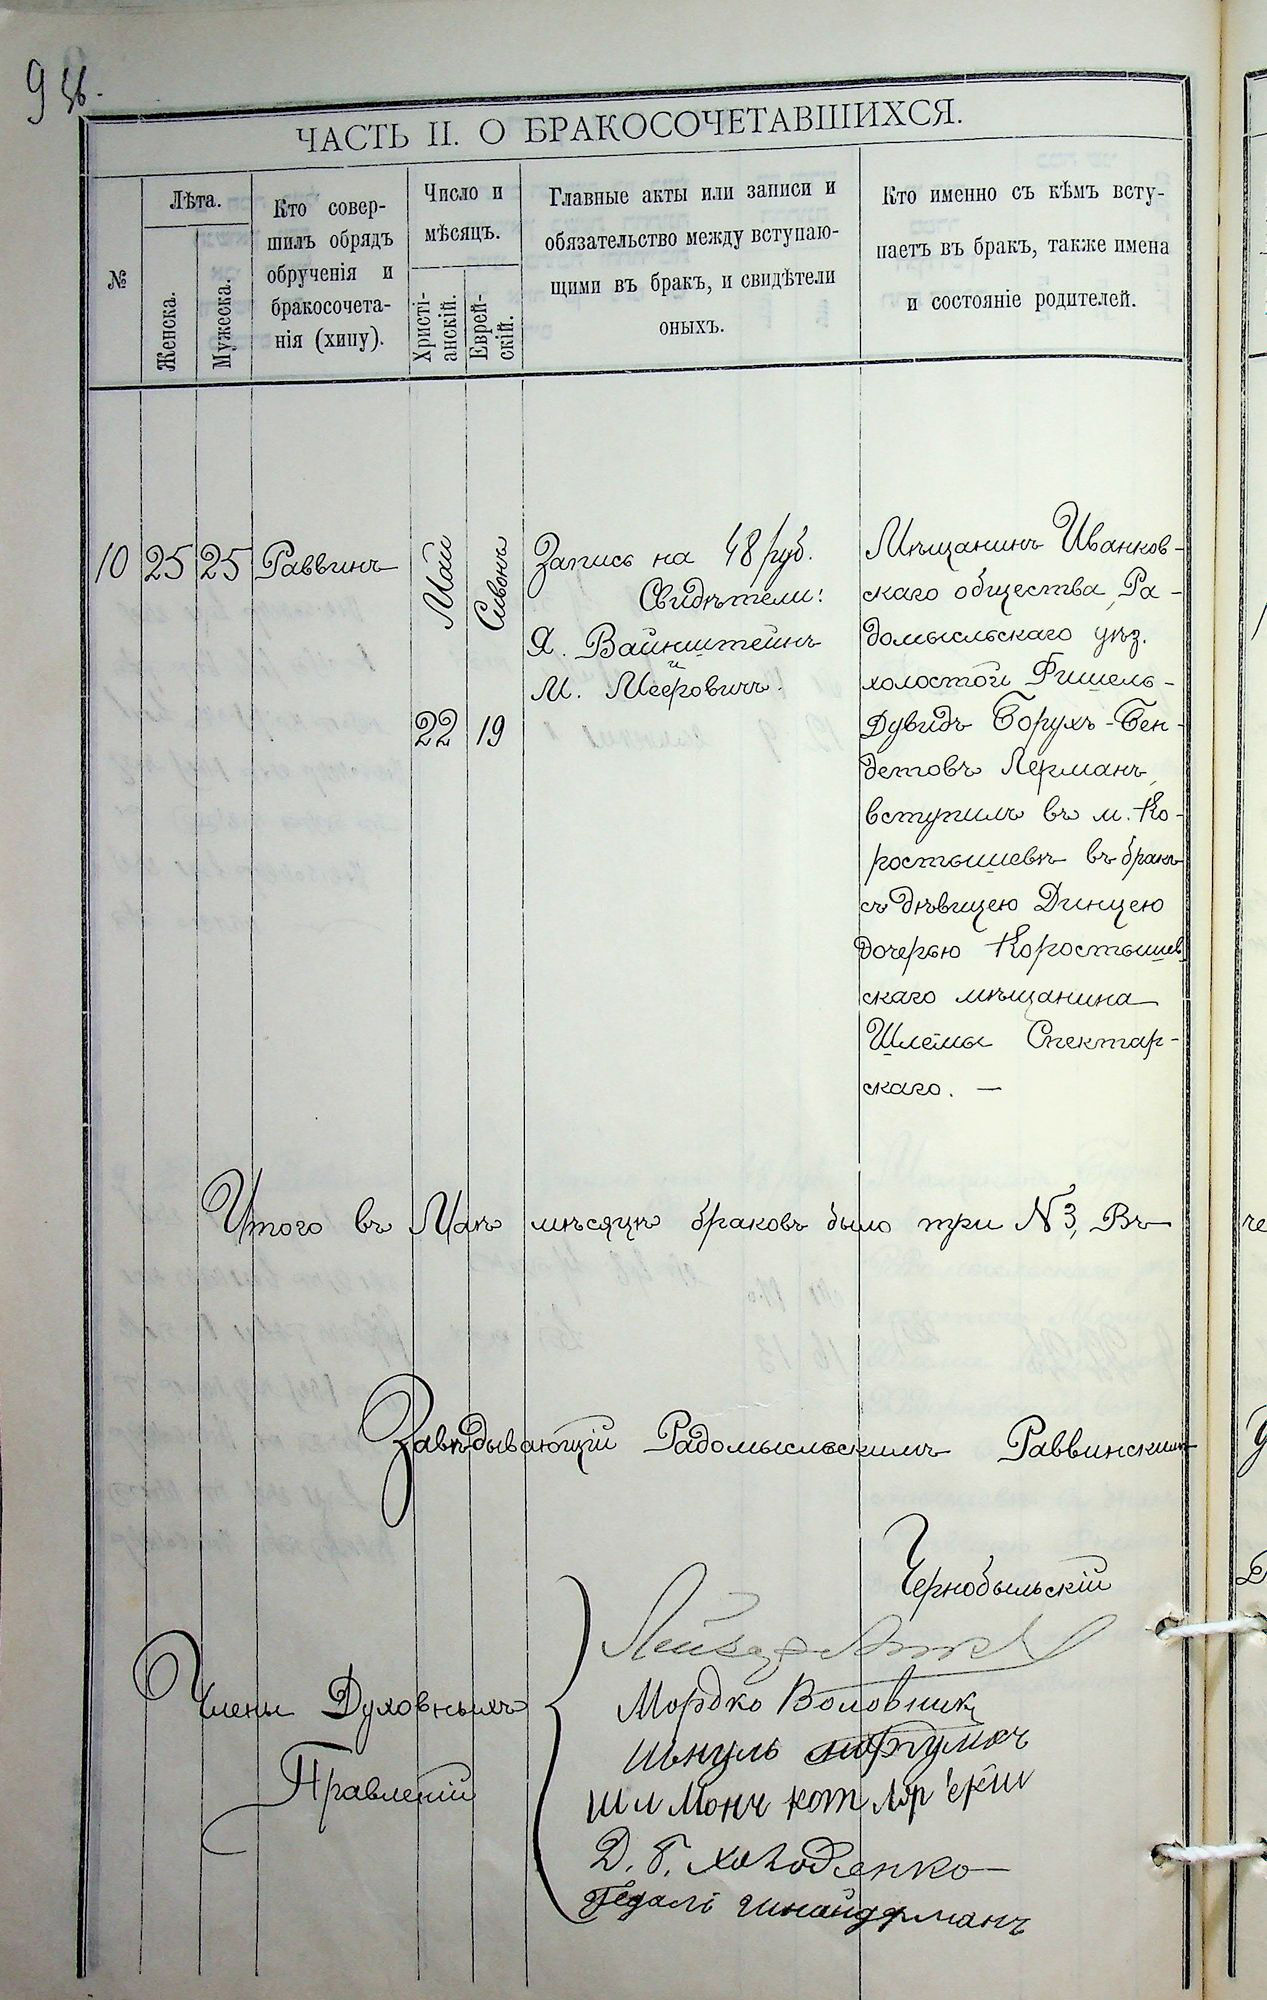 9 зв.
ЧАСТЬ II. О БРАКОСОЧЕТАВШИХСЯ.
№
Лѣта.
Женска.
Мужеска.
Кто совер-
шилъ обрядъ
обрученія и
бракосочета-
нія (хипу).
Число и
мѣсяцъ.
Христі-
анскій.
Еврей-
скій.
Главные акты или записи и
обязательство между вступаю-
щими въ бракъ, и свидѣтели
оныхъ.
Кто именно съ кѣмъ всту-
паетъ въ бракъ, также имена
и состояніе родителей.
10 25 25 Раввинъ
Май
22
Сивонъ
19
Запись на 48 руб.
Свидѣтели:
Я. Вайнштейнъ
и
М. Мееровичъ.
Мѣщанинъ Иванков-
скаго общества, Ра-
домысльскаго уѣз.
холостой Фишель-
Дувидъ Борухъ-Бен-
детовъ Лерманъ,
вступилъ въ м. Ко-
ростышевѣ въ бракъ
съ дѣвицею Динцею
дочерью Коростышев
скаго мѣщанина
Шлемы Спектар-
скаго. —
Итого въ Маѣ мѣсяцѣ браковъ было три № 3, Въ
Завѣдывающій Радомысльскимъ Раввинскимъ
Чернобыльскій
Члены Духовныхъ
Правленій
Мордко Воловник
Д. Г. Холоденко